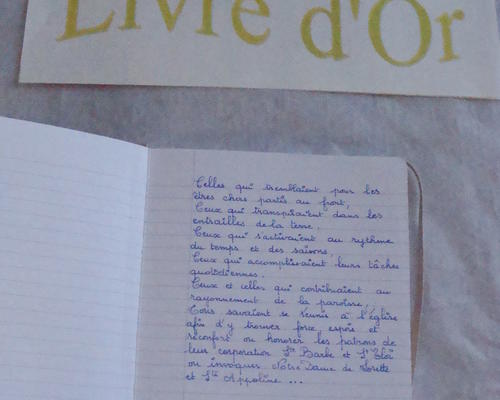 Livre d'Or
Celles qui tremblaient pour les
êtres chers partis au front,
Ceux qui transpiraient dans les
entrailles de la terre.
Ceux qui s'activaient au rythme
du temps et des saisons,
Ceux qui accomplissaient leurs tâches
quotidiennes.
Ceux et celles qui contribuaient au
rayonnement de la paroisse,
Tous savaient se réunir à l'église
afin d'y trouver force, espoir et
réconfort ou honorer les patrons de
leur corporation Ste Barbe et St Eloi
ou invoquer Notre Dame de Lorette
et Ste Appoline ...